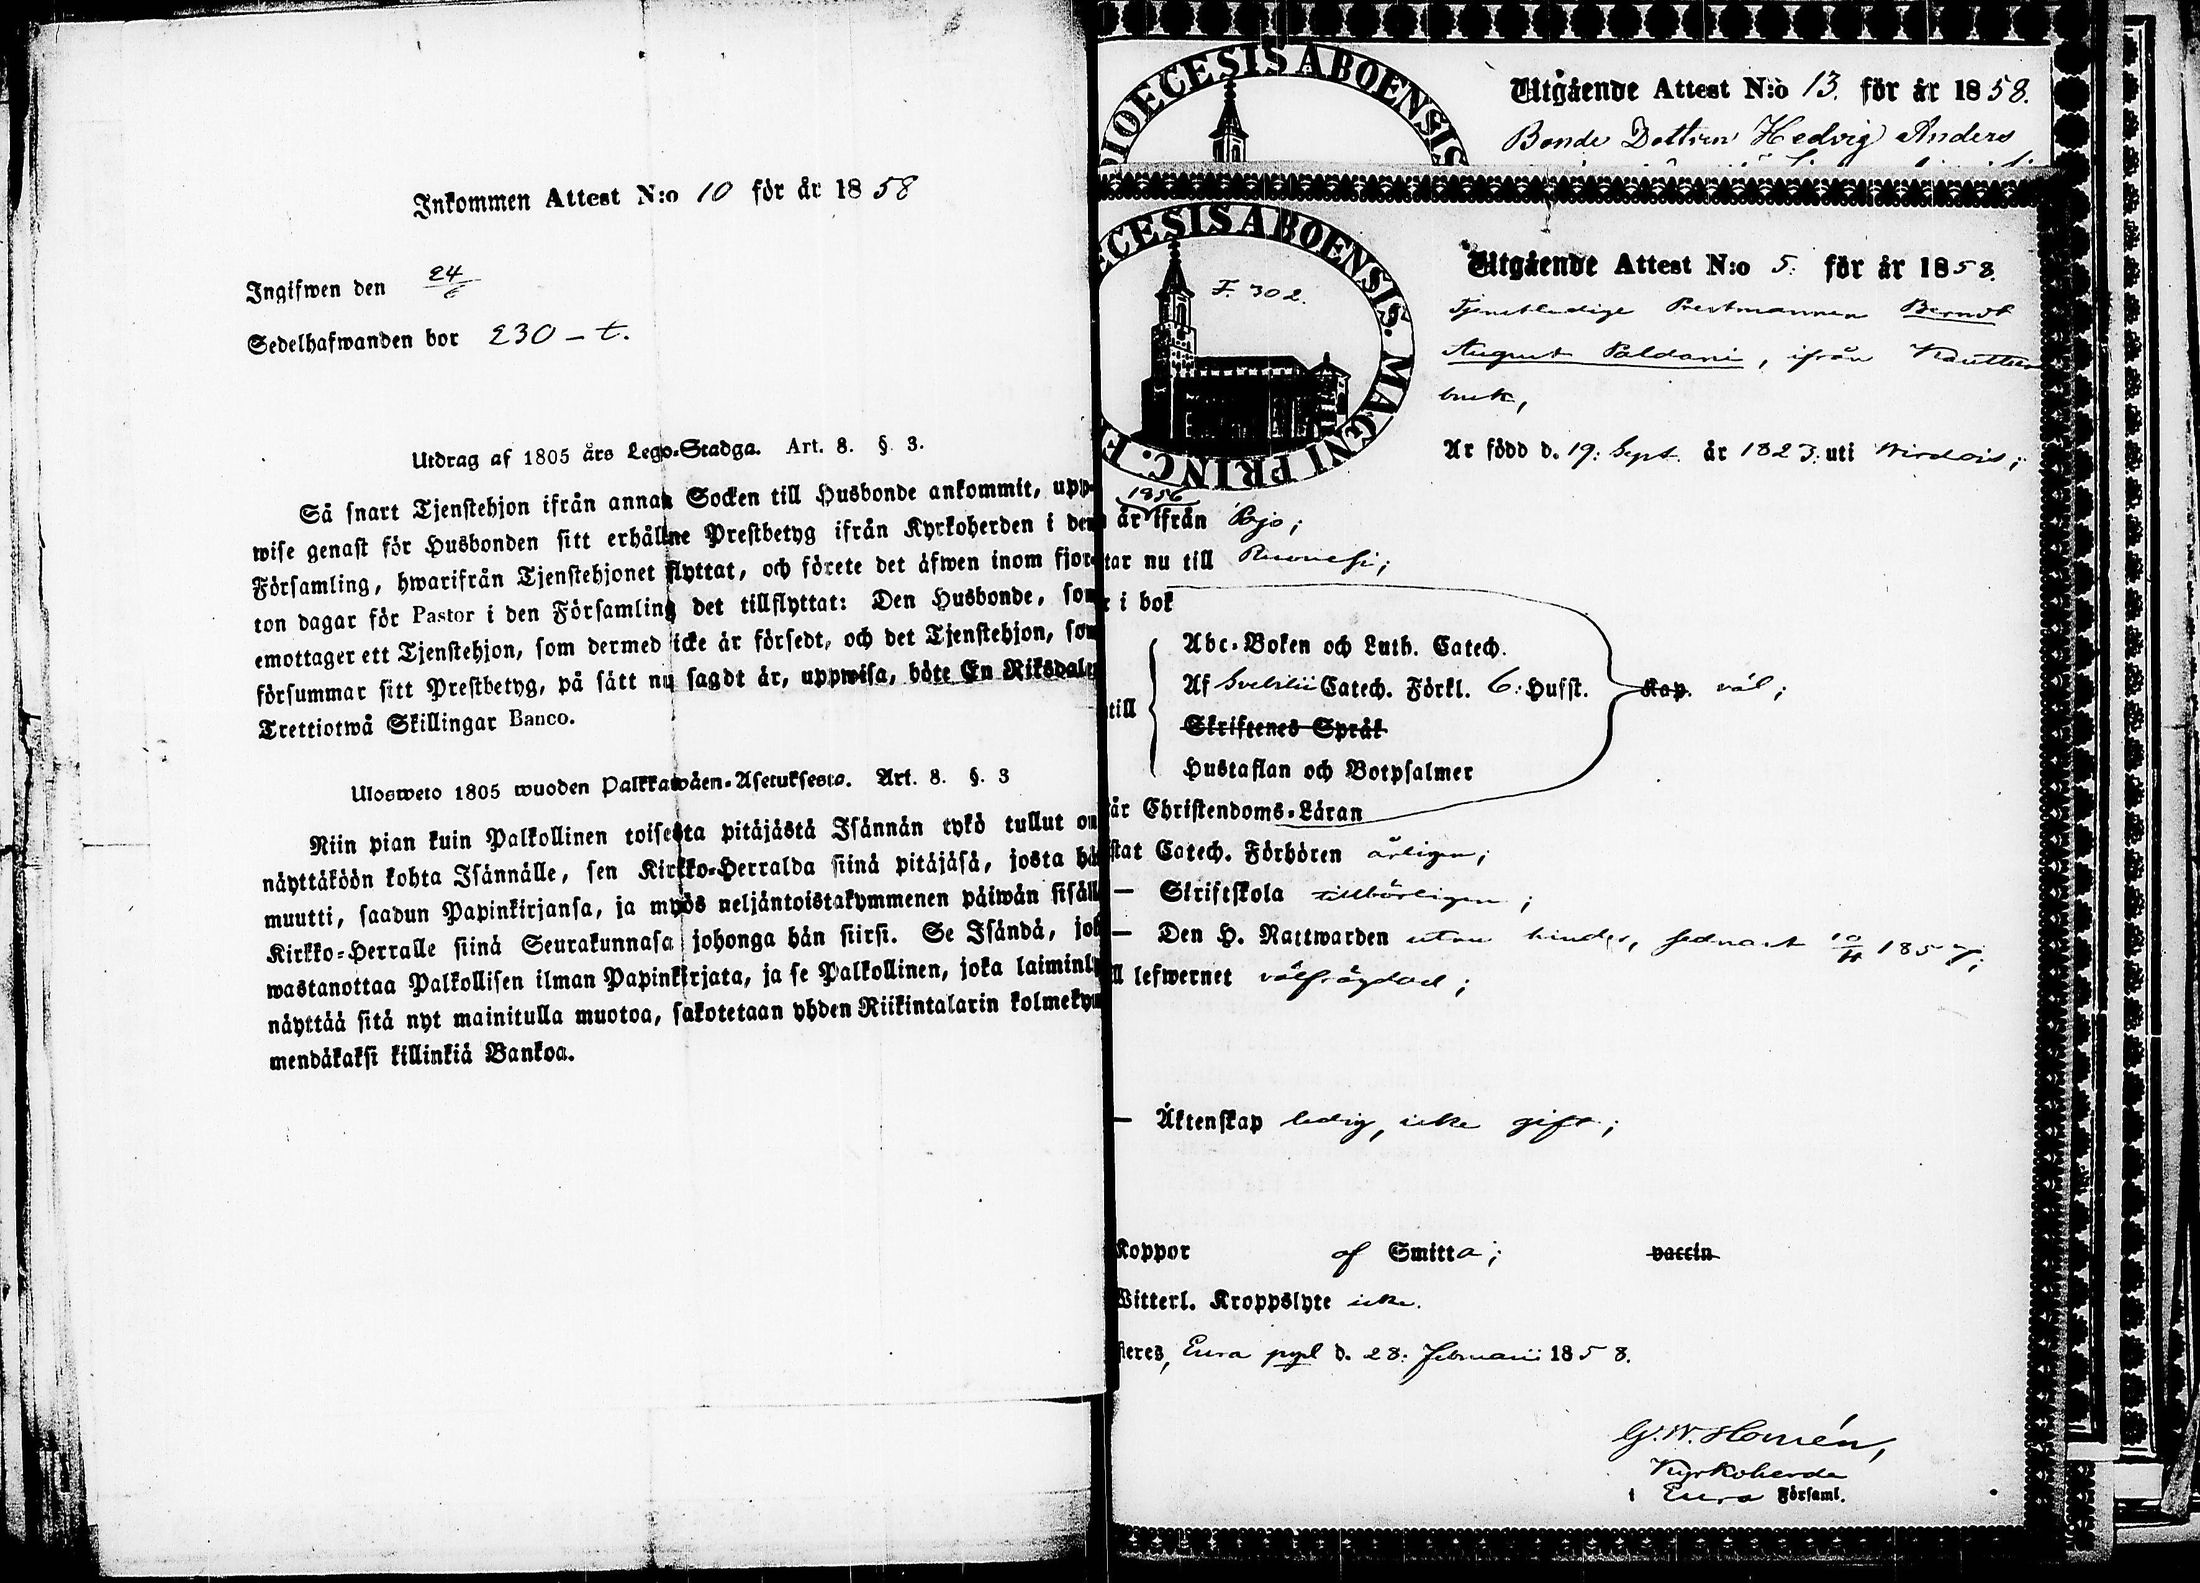 Inkommen Attest N:o 10 för år 1858
Ingifwen den 24/6
Sedelhafwanden bor 230 - t.
Utdrag af 1805 års Lego-Stadga. Art. 8. §. 3.
Så snart Tjenstehjon ifrån annan Socken till Husbonde ankommit, upp-
wise genast för Husbonden sitt erhållne Prestbetyg ifrån Kyrkoherden i den
Församling, hwarifrån Tjenstehjonet flyttat, och förete det äfwen inom fjor-
ton dagar för Pastor i den Församling det tillflyttat: Den Husbonde, som
emottager ett Tjenstehjon, som dermed icke är försedt, och det Tjenstehjon, som
försummar sitt Prestbetyg, på sätt nu sagdt är, uppwisa, böte En Riksdaler
Trettiotwå Skillingar Banco.
Ulosweto 1805 wuoden Palkkawäen-Asetuksesta. Art. 8. §. 3
Niin pian kuin Palkollinen toisesta pitäjästä Isännän tykö tullut on
näyttäköön kohta Isännälle, sen Kirkko-Herralda siinä pitäjäsä, josta hän
muutti, saadun Papinkirjansa, ja myös neljäntoistakymmenen päiwän sisällä
Kirkko-Herralle siinä Seurakunnasa johonga hän siirsi. Se Isändä, jok
wastanottaa Palkollisen ilman Papinkirjata, ja se Palkollinen, joka laiminly
näyttää sitä nyt mainitulla muotoa, sakotetaan yhden Riikintalarin kolmekym
mendäkaksi killinkiä Bankoa.
DIOECESIS ABOENSIS
Utgående Attest N:o 13. för år 1858.
Bonde Dottren Hedvig Anders
ECESIS ABOENSIS. MAGNI PRINC. F
F. 302.
Utgående Attest N:o 5. för år 1858.
Tjenstledige Prestmannen Berndt
August Paldani, ifrån Kauttua
bruk,
Är född d. 19: Sept. år 1823: uti Wirdois;
1856
år ifrån Pojo;
tar nu till
i bok
Abc-Boken och Luth. Catech.
Af Svebilii Catech. Förkl. 6: Husst. Kap. väl;
till
Skriftenes Språk
Hustaflan och Botpsalmer
år Christendoms-Läran
stat Catech. Förhören årligen;
— Skriftskola tillbörligen;
— Den H. Nattwarden utan hinder, sednast 1857;
ll lefwernet välfrägdad;
— Äktenskap ledig, icke gift;
Koppor af Smitta; vaccin
Witterl. Kroppslyte icke.
steres, Eura pgl d. 28: februarii 1858.
G. W. Homén,
Kyrkoherde
i Eura Församl.